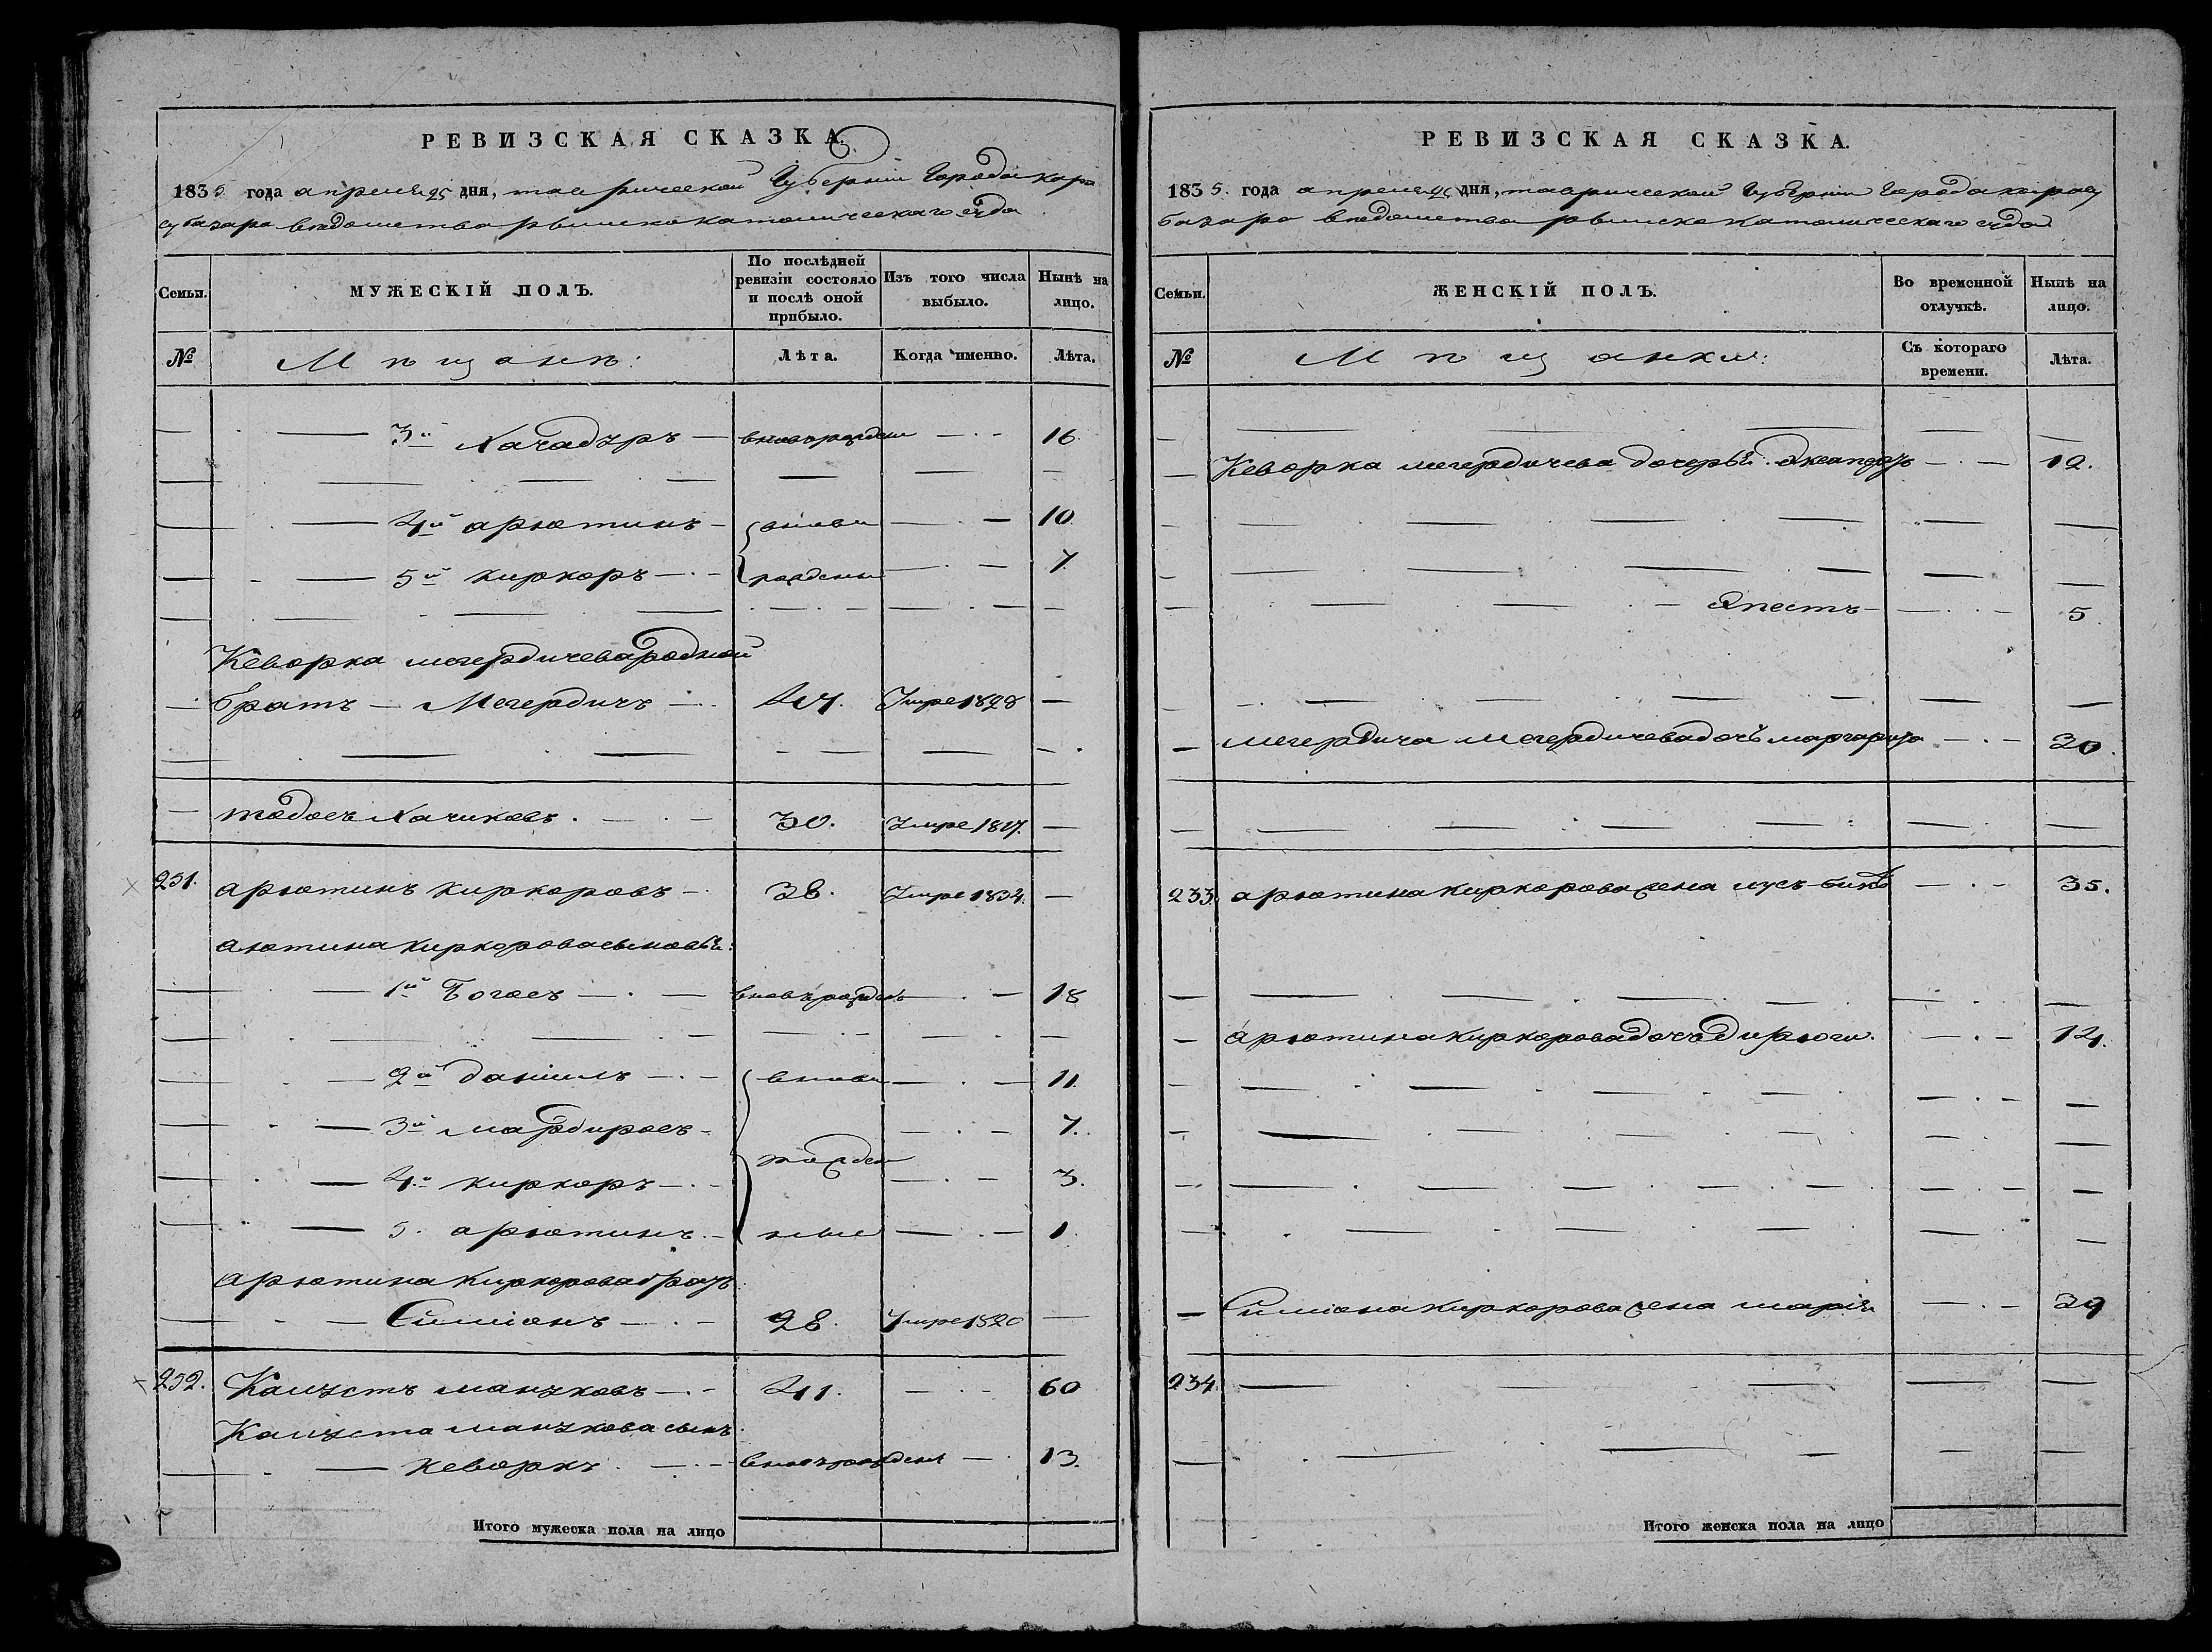 РЕВИЗСКАЯ СКАЗКА.
1835 года апреля 25 дня, таврической Губернiи Города кара
субазара ведомства римско католическаго суда
Семьи. МУЖЕСКІЙ ПОЛЪ. По послѣдней ревизіи состояло и послѣ оной прибыло. Изъ того числа выбыло. Нынѣ на лицо.
№ Мѣщане: Лѣта. Когда именно. Лѣта.
— 3й Хачадуръ — вновь рожден — 16
— 4й арютинъ — вновь — 10
— 5й киркоръ — рождены — 7
Кеворка мегердичева родной
братъ — Мегердичъ — 44. Умре 1828 —
тодосъ Хачиковъ. — 30. Умре 1817. —
231. арютинъ киркоровъ — 38. Умре 1834. —
аютина киркорова сыновья:
— 1й Богосъ — вновь рожденъ — 18
— 2й данiилъ — вновь — 11.
— 3й мардиросъ — 7.
рожден
— 4й киркоръ — 3.
— 5. арютинъ — ные — 1.
арютина киркорова братъ
— Симiонъ — 28. Умре 1820 —
232. Калустъ мануковъ — 41. — 60
Калуста манукова сынъ
— кеворкъ. — вновь рожденъ — 13.
Итого мужеска пола на лицо
РЕВИЗСКАЯ СКАЗКА.
1835. года апреля 25 дня, таврической Губернiи Города карасу
базара ведомства римско католическаго суда
Семьи. ЖЕНСКІЙ ПОЛЪ. Во временной отлучкѣ. Нынѣ на лицо.
№ Мѣщанки: Съ котораго времени. Лѣта.
— Кеворка мегердичева дочерьи — 12.
— 5
— мегердича мегердичева дочь маргарида — 20.
233. арютина киркорова жена — 35.
— арютина киркорова дочь — 14.
— Симiона киркорова жена марiя — 29
234. —
Итого женска пола на лицо